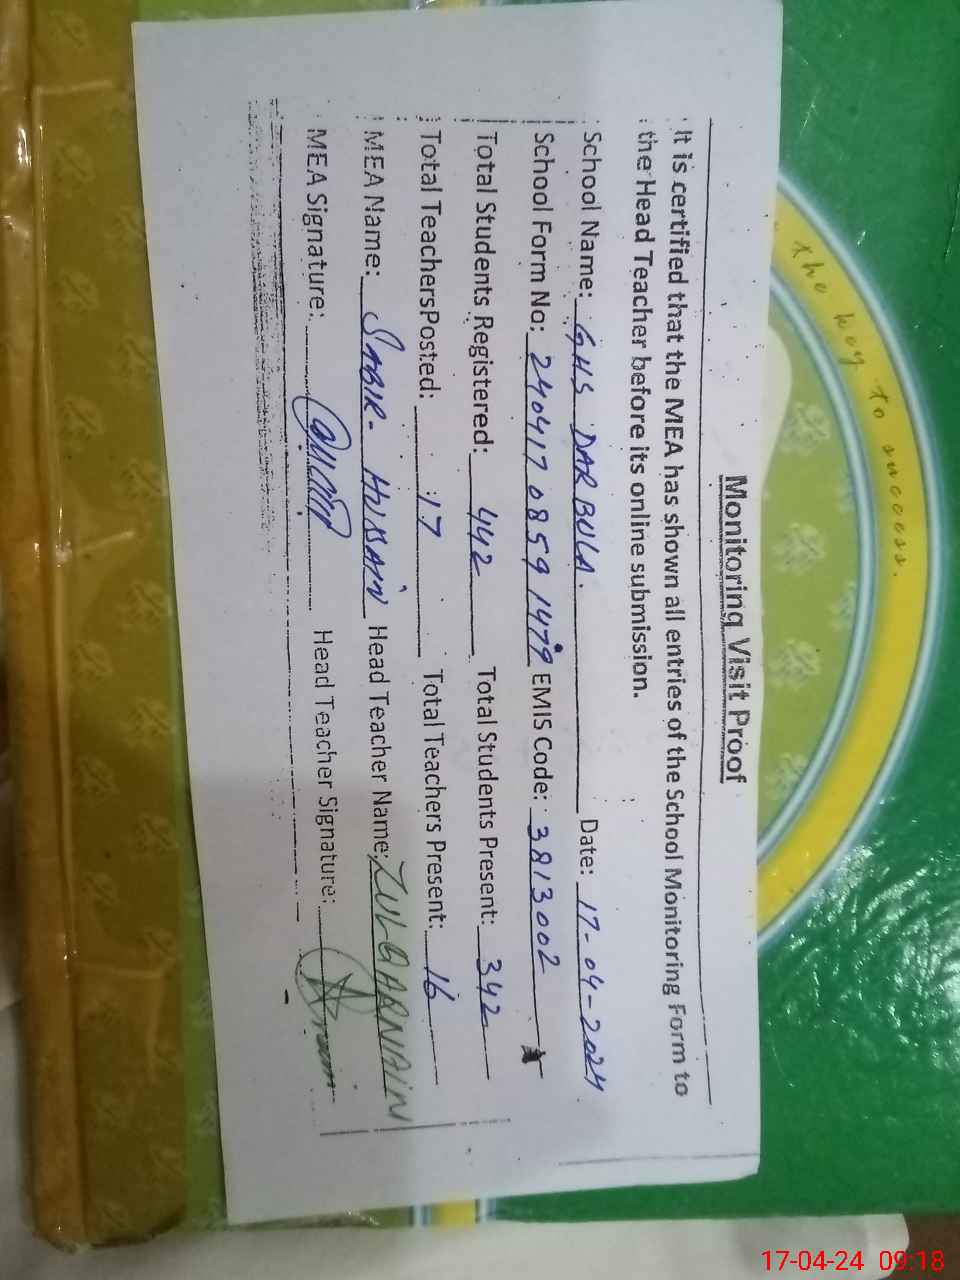 Monitoring Visit Proof
It is certified that the MEA has shown all entries of the School Monitoring Form to
the Head Teacher before its online submission.
School Name: GHS DARBULA. Date: 17-04-2024
School Form No: 24041708591479 EMIS Code: 3813002
Total Students Registered: 442 Total Students Present: 342
Total TeachersPosted: 17 Total Teachers Present: 16
MEA Name: SABIR HUSSAIN Head Teacher Name: ZULQARNAIN
MEA Signature: Head Teacher Signature:
the key to success.
17-04-24 09:18